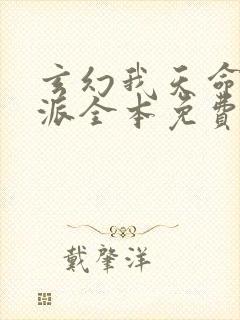 玄幻我天命
派全本免費
戴肇洋